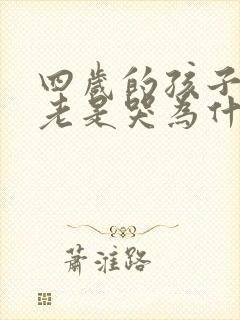 四歲的孩子
老是哭為什
蕭淮路